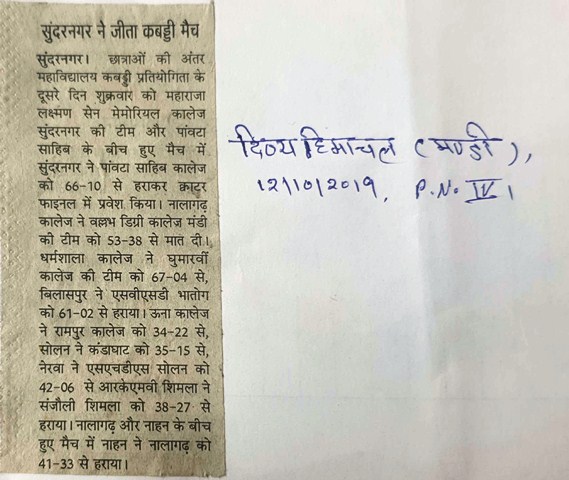 सुंदरनगर ने जीता कबड्डी मैच
सुंदरनगर। छात्राओं की अंतर
महाविद्यालय कबड्डी प्रतियोगिता के
दूसरे दिन शुक्रवार को महाराजा
लक्ष्मण सेन मेमोरियल कालेज
सुंदरनगर की टीम और पांवटा
साहिब के बीच हुए मैच में
सुंदरनगर ने पांवटा साहिब कालेज
को 66-10 से हराकर क्वाटर
फाइनल में प्रवेश किया। नालागढ़
कालेज ने वल्लभ डिग्री कालेज मंडी
को टीम को 53-38 से मात दी।
धर्मशाला कालेज ने घुमारवीं
कालेज की टीम को 67-04 से,
बिलासपुर ने एसवीएसडी भातोग
को 61-02 से हराया। ऊना कालेज
ने रामपुर कालेज को 34-22 से,
सोलन ने कंडाघाट को 35-15 से,
नेरवा ने एसएचडीएस सोलन को
42-06 से आरकेएमवी शिमला ने
संजौली शिमला को 38-27 से
हराया। नालागढ़ और नाहन के बीच
हुए मैच में नाहन ने नालागढ़ को
41-33 से हराया।
दिव्य हिमाचल (मण्डी),
12/10/2019, P.No. IV।